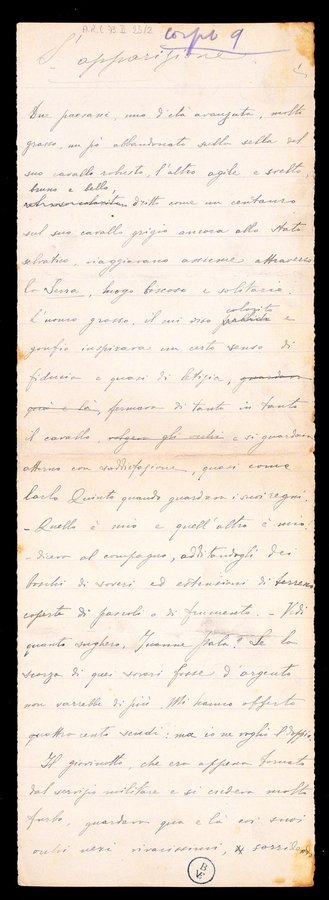 A.R.C. 73 II 25/2
corpo 9
L'apparizione.
Due paesani, uno d'età avanzata, molto
grasso, un po' abbandonato sulla sella del
suo cavallo robusto, l'altro agile e svelto,
bruno e bello,
dritto come un centauro
sul suo cavallo grigio ancora allo stato
selvatico, viaggiavano assieme attraverso
la Serra, luogo boscoso e solitario.
colorito
L'uomo grasso, il cui viso e
gonfio inspirava un certo senso di
fiducia e quasi di letizia, guardava
qua e là, fermava di tanto in tanto
il cavallo, volgeva gli occhi e si guardava
attorno con soddisfazione, quasi come
Carlo Quinto quando guardava i suoi regni.
– Quello è mio e quell'altro è mio!
– diceva al compagno, additandogli dei
boschi di soveri ed estensioni di terreno
coperte di pascoli o di frumento. – Vedi
quanto sughero, Juanne ? Se la
scorza di quei soveri fosse d'argento
non varrebbe di più. Mi hanno offerto
quattro cento scudi: ma io ne voglio il doppio.
Il giovinotto, che era appena tornato
dal servizio militare e si credeva molto
furbo, guardava qua e là coi suoi
occhi neri vivacissimi, sorridendo